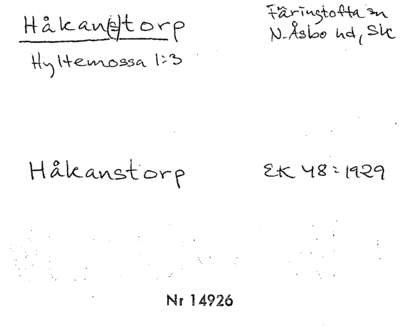 Håkan(s)torp
Färingtofta sn
N. Åsbo hd, Sk
Hyltemossa 1:3
Håkanstorp
EK 48:1929
Nr 14926